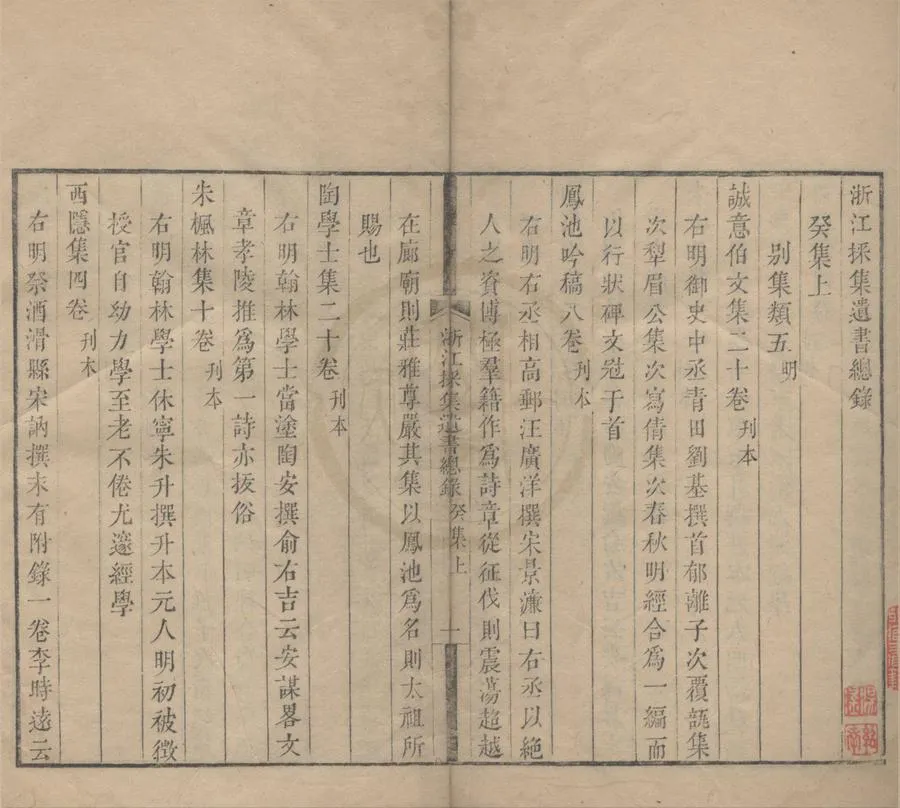 浙江採集遺書總錄
癸集上
別集類五 明
誠意伯文集二十卷 刊本
右明御史中丞青田劉基撰首郁離子次覆瓿集
次犁眉公集次寫情集次春秋明經合為一編而
以行狀碑文冠于首
鳳池吟稿八卷 刊本
右明右丞相高郵汪廣洋撰宋景濂曰右丞以絕
人之資博極羣籍作為詩章從征伐則震蕩超越
浙江採集遺書總錄 癸集上 一
在廊廟則莊雅尊嚴其集以鳳池為名則太祖所
賜也
陶學士集二十卷 刊本
右明翰林學士當塗陶安撰俞右吉云安謀畧文
章孝陵推為第一詩亦拔俗
朱楓林集十卷 刊本
右明翰林學士休寧朱升撰升本元人明初被徵
授官自幼力學至老不倦尤邃經學
西隱集四卷 刊本
右明祭酒滑縣宋訥撰末有附錄一卷李時遠云